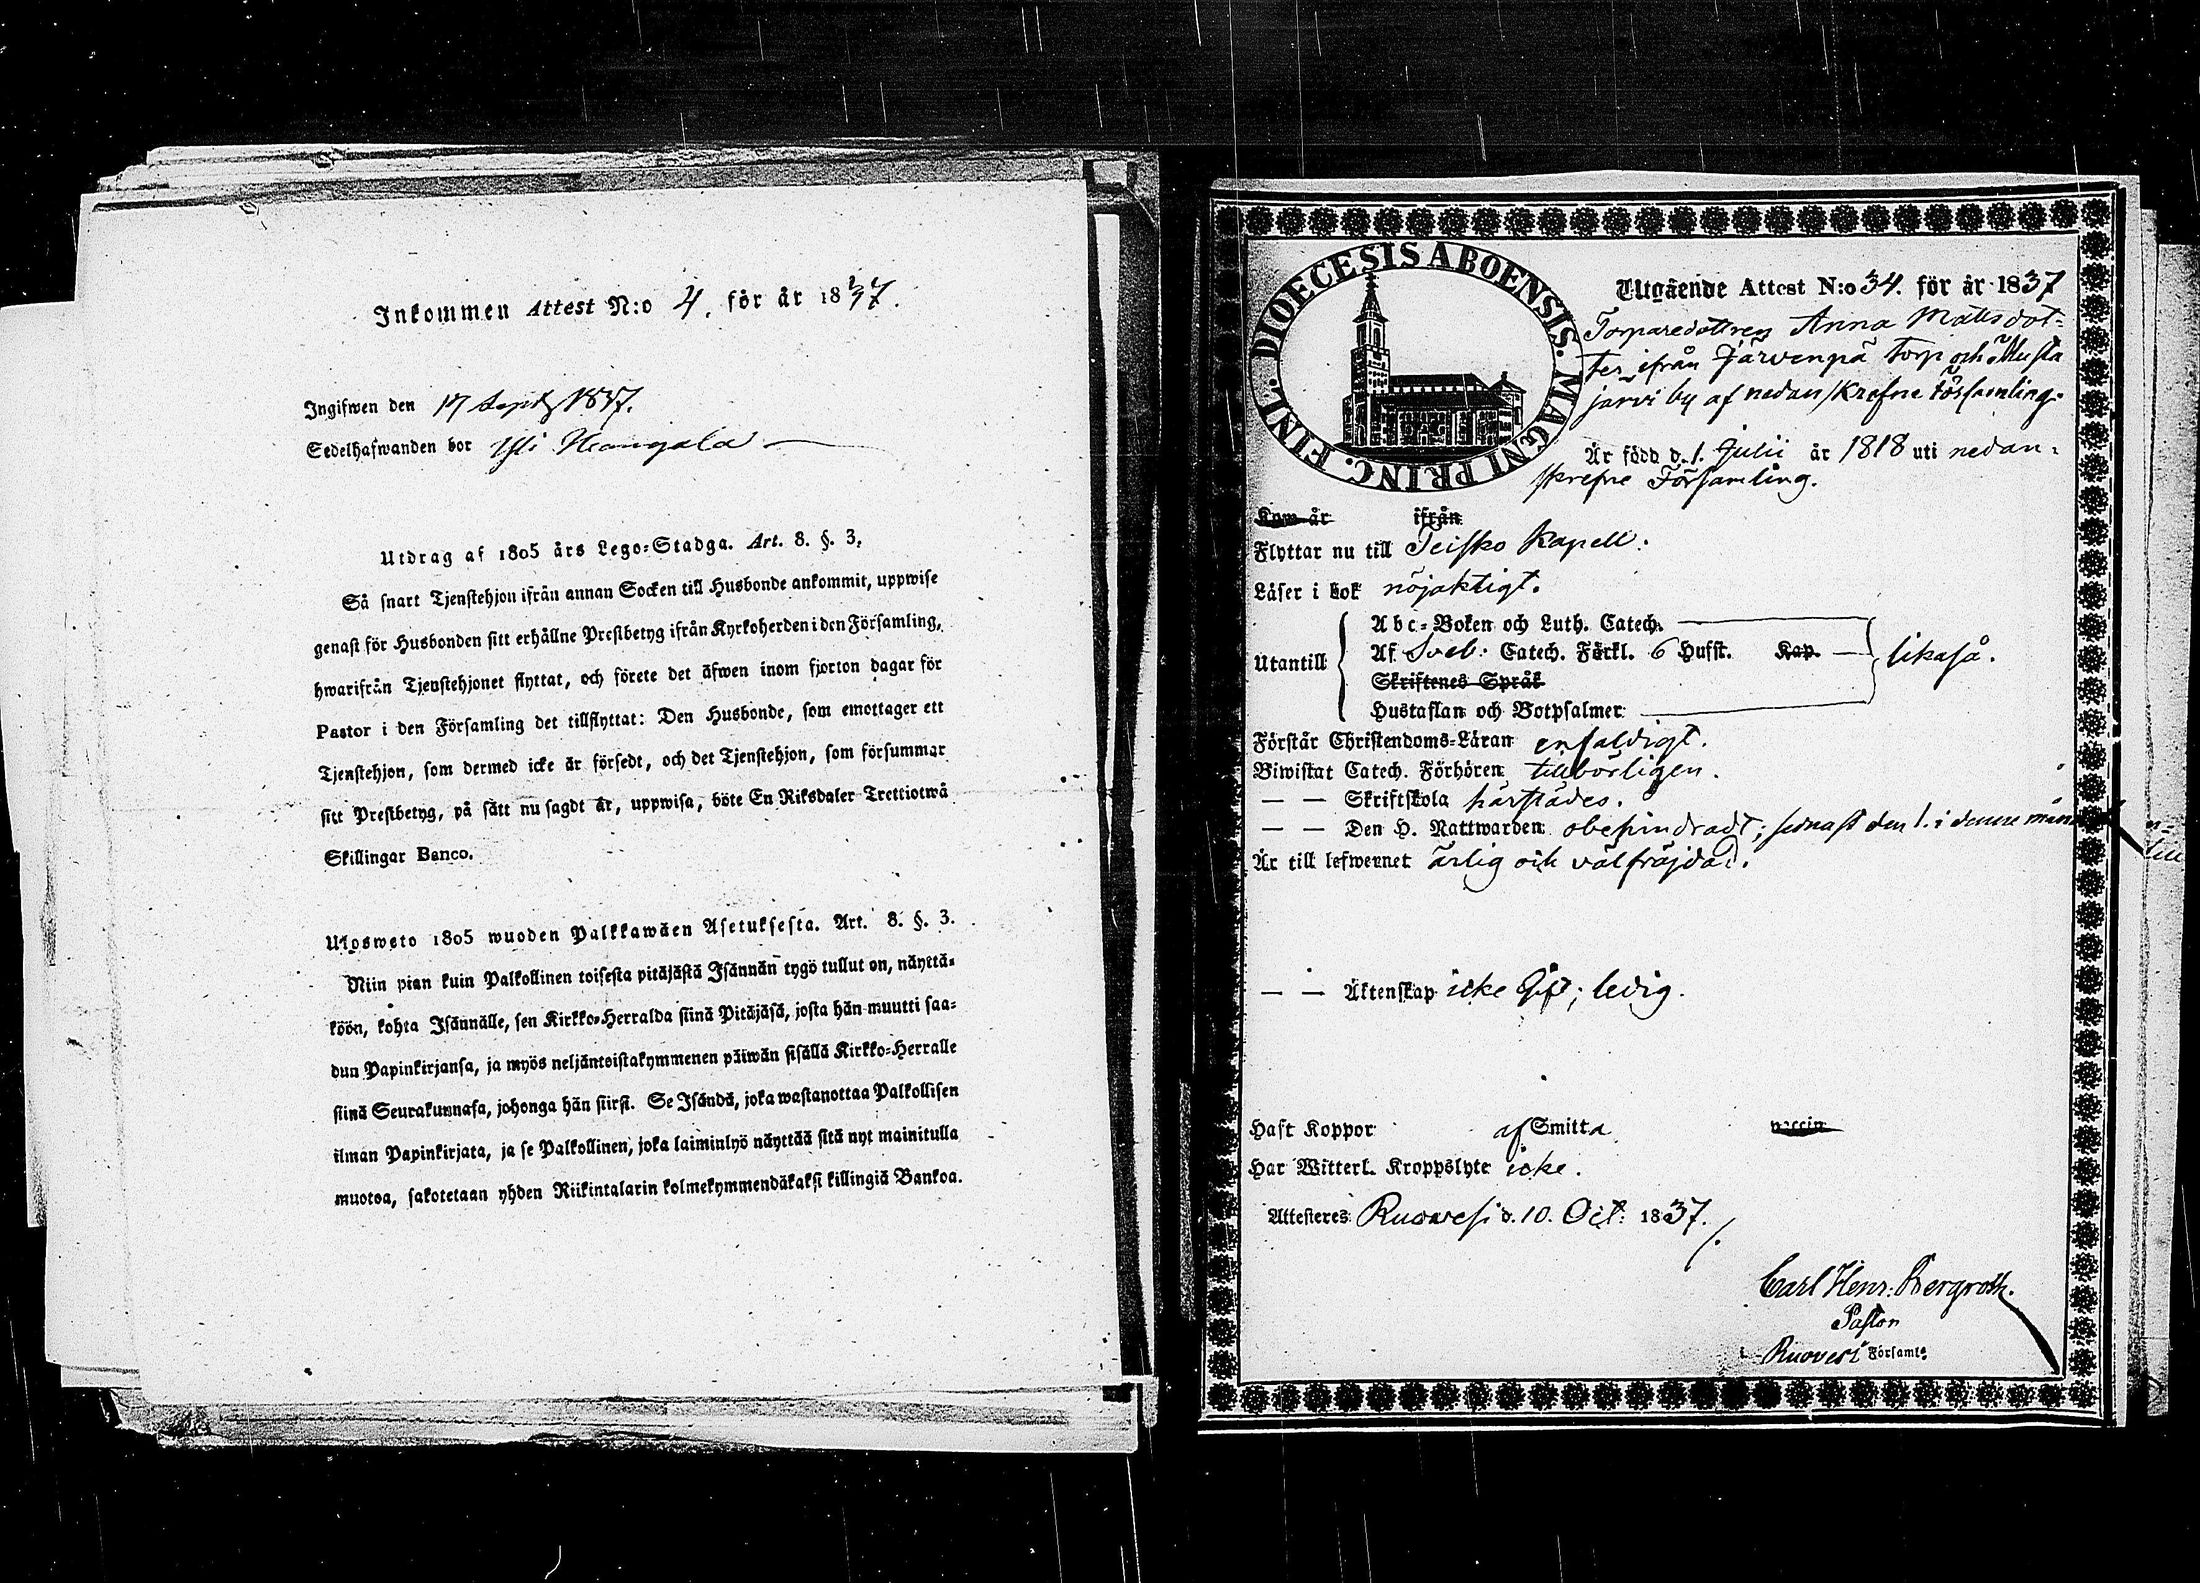 Inkommen Attest N:o 4. för år 1837.
Ingifwen den 17 Sept 1837.
Sedelhafwanden bor Yli
Utdrag af 1805 års Lego-Stadga. Art. 8. §. 3.
Så snart Tjenstehjon ifrån annan Socken till Husbonde ankommit, uppwise
genast för Husbonden sitt erhållne Prestbetyg ifrån Kyrkoherden i den Församling,
hwarifrån Tjenstehjonet flyttat, och förete det äfwen inom fjorton dagar för
Pastor i den Församling det tillflyttat: Den Husbonde, som emottager ett
Tjenstehjon, som dermed icke är försedt, och det Tjenstehjon, som försummar
sitt Prestbetyg, på sätt nu sagdt är, uppwisa, böte En Riksdaler Trettiotwå
Skillingar Banco.
Ulosweto 1805 wuoden Palkkawäen Asetuksesta. Art. 8. §. 3.
Niin pian kuin Palkollinen toisesta pitäjästä Isännän tygö tullut on, näyttä-
köön, kohta Isännälle, sen Kirkko-Herralda siinä Pitäjäsä, josta hän muutti saa-
dun Papinkirjansa, ja myös neljäntoistakymmenen päiwän sisällä Kirkko-Herralle
siinä Seurakunnasa, johonga hän siirsi. Se Isändä, joka wastanottaa Palkollisen
ilman Papinkirjata, ja se Palkollinen, joka laiminlyö näyttää sitä nyt mainitulla
muotoa, sakotetaan yhden Riikintalarin kolmekymmendäkaksi killingiä Bankoa.
DIOECESIS ABOENSIS. MAGNI PRINC. FINL.
Utgående Attest N:o 34. för år 1837
Torparedottren Anna Mattsdot-
ter ifrån Järvenpä torp och Musta
jarvi by af nedanskrefne församling.
Är född d. 1. Julii år 1818 uti nedan-
skrefne Församling.
Kom år ifrån
Flyttar nu till Teisko Kapell.
Läser i bok nöjaktigt.
Abc-Boken och Luth. Catech.
Utantill Af Sveb: Catech. Förkl. 6 Hufst. Kap. likaså.
Skriftenes Språk
Hustaflan och Botpsalmer
Förstår Christendoms-Läran enfaldigt.
Biwistat Catech. Förhören tillbörligen.
— — Skriftskola härstädes.
— — Den H. Nattwarden obehindradt; sednast den 1. i denne
Är till lefwernet ärlig och välfräjdad.
— — Äktenskap icke Gift; ledig.
Haft Koppor af Smitta vaccin
Har Witterl. Kroppslyte icke.
Attesteres Ruovesi d. 10. Oct: 1837.
Carl Henr: Bergroth.
Pastor
i Ruovesi Församl: